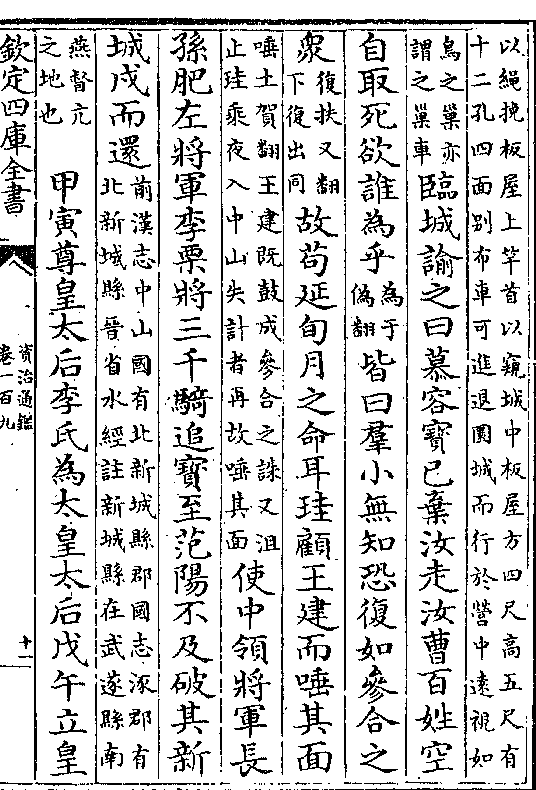 以繩挽板屋上竿首以窺城中板屋方四尺高五尺有
十二孔四面别布車可進退圍城而行於營中遠視如
鳥之巢亦
謂之巢車
臨城諭之曰慕容寶已棄汝走汝曹百姓空
自取死欲誰為乎
為于
偽翻
皆曰羣小無知恐復如參合之
衆
復扶又翻
下復出同
故苟延旬月之命耳珪顧王建而唾其面
唾土賀翻王建既鼓成參合之誅又沮
止珪乘夜入中山失計者再故唾其面
使中領將軍長
孫肥左將軍李栗將三千騎追寶至范陽不及破其新
城戍而還
前漢志中山國有北新城縣郡國志涿郡有
北新城縣晉省水經註新城縣在武遂縣南
燕督亢
之地也
甲寅尊皇太后李氏為太皇太后戊午立皇
欽定四庫全書
資治通鑑
卷一百九
十一